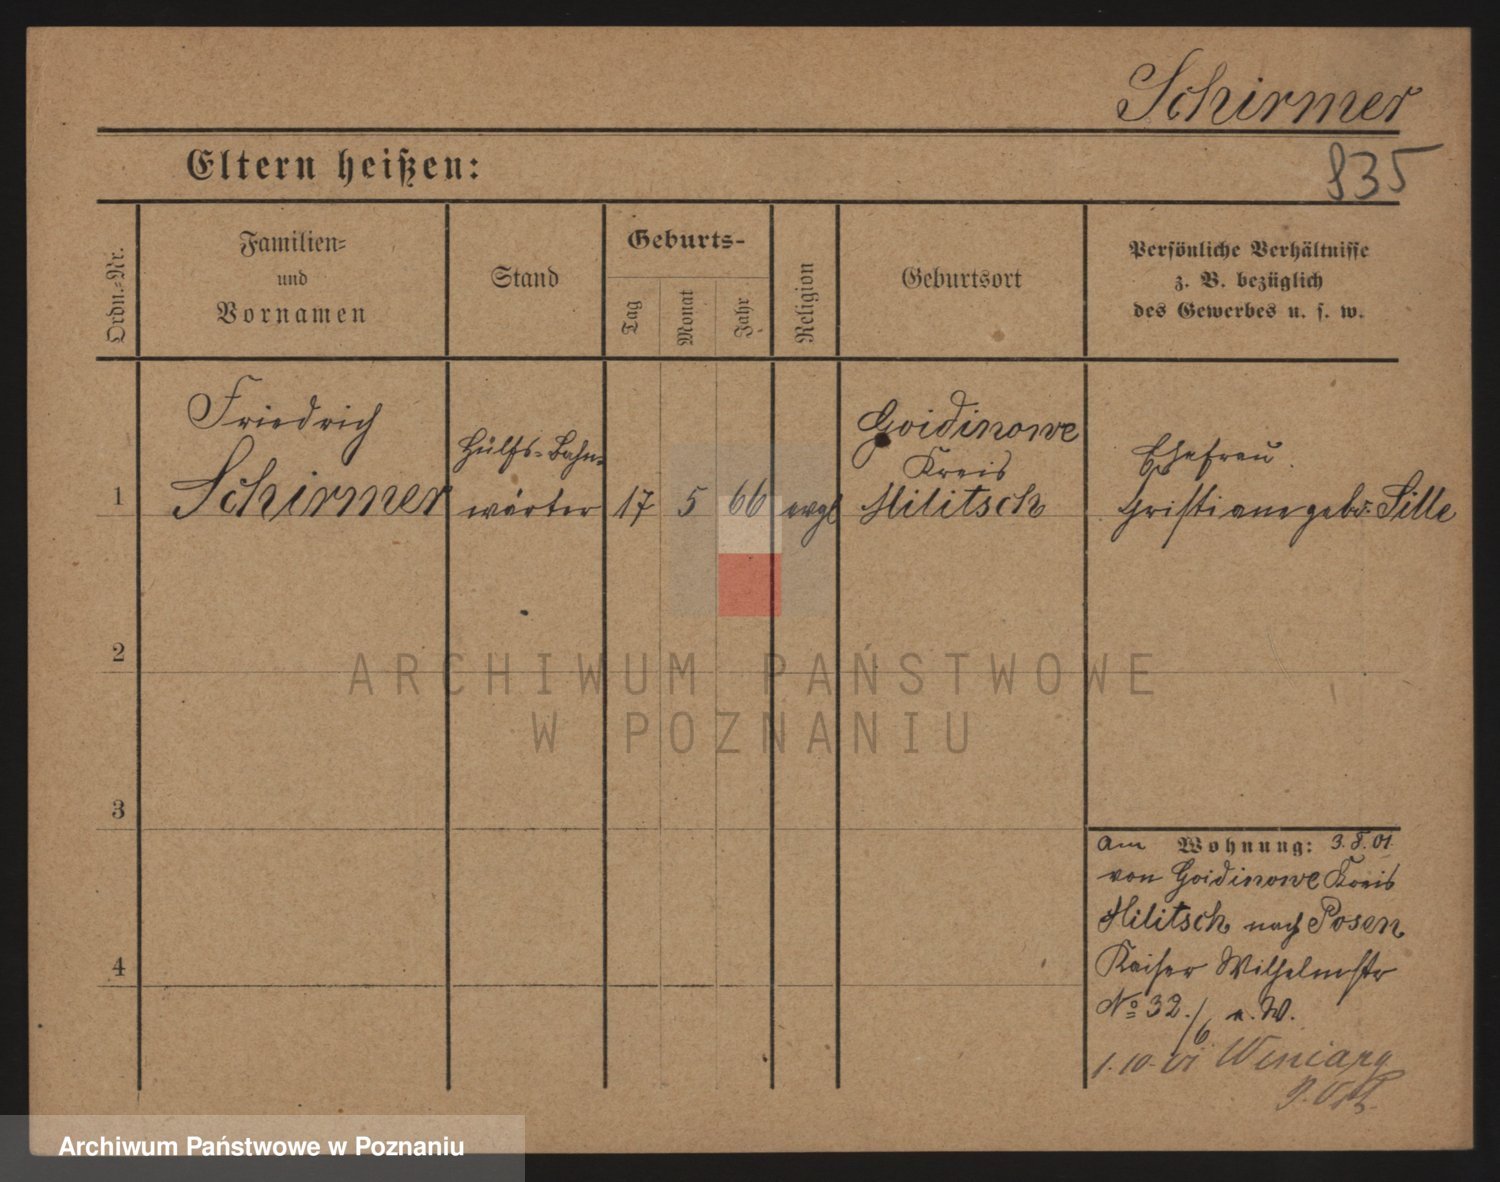 Schirmer
Eltern heißen:
835
Ordn.-Nr.
Familien-
und
Vornamen
Stand
Geburts-
Tag
Monat
Jahr
Religion
Geburtsort
Persönliche Verhältnisse
z. B. bezüglich
des Gewerbes u. s. w.
1
Friedrich
Schirmer
Hülfs-Bahn-
wärter
17
5
66
evgl
Goidinowe
Kreis
Militsch
Ehefrau
Christiane geb. Sille
2
ARCHIWUM PAŃSTWOWE
W POZNANIU
3
4
Am Wohnung: 3.8.01.
von Goidinowe Kreis
Militsch nach Posen
Kaiser Wilhelmstr
No 32./6 a.W.
1.10.01 Winiary
Archiwum Państwowe w Poznaniu